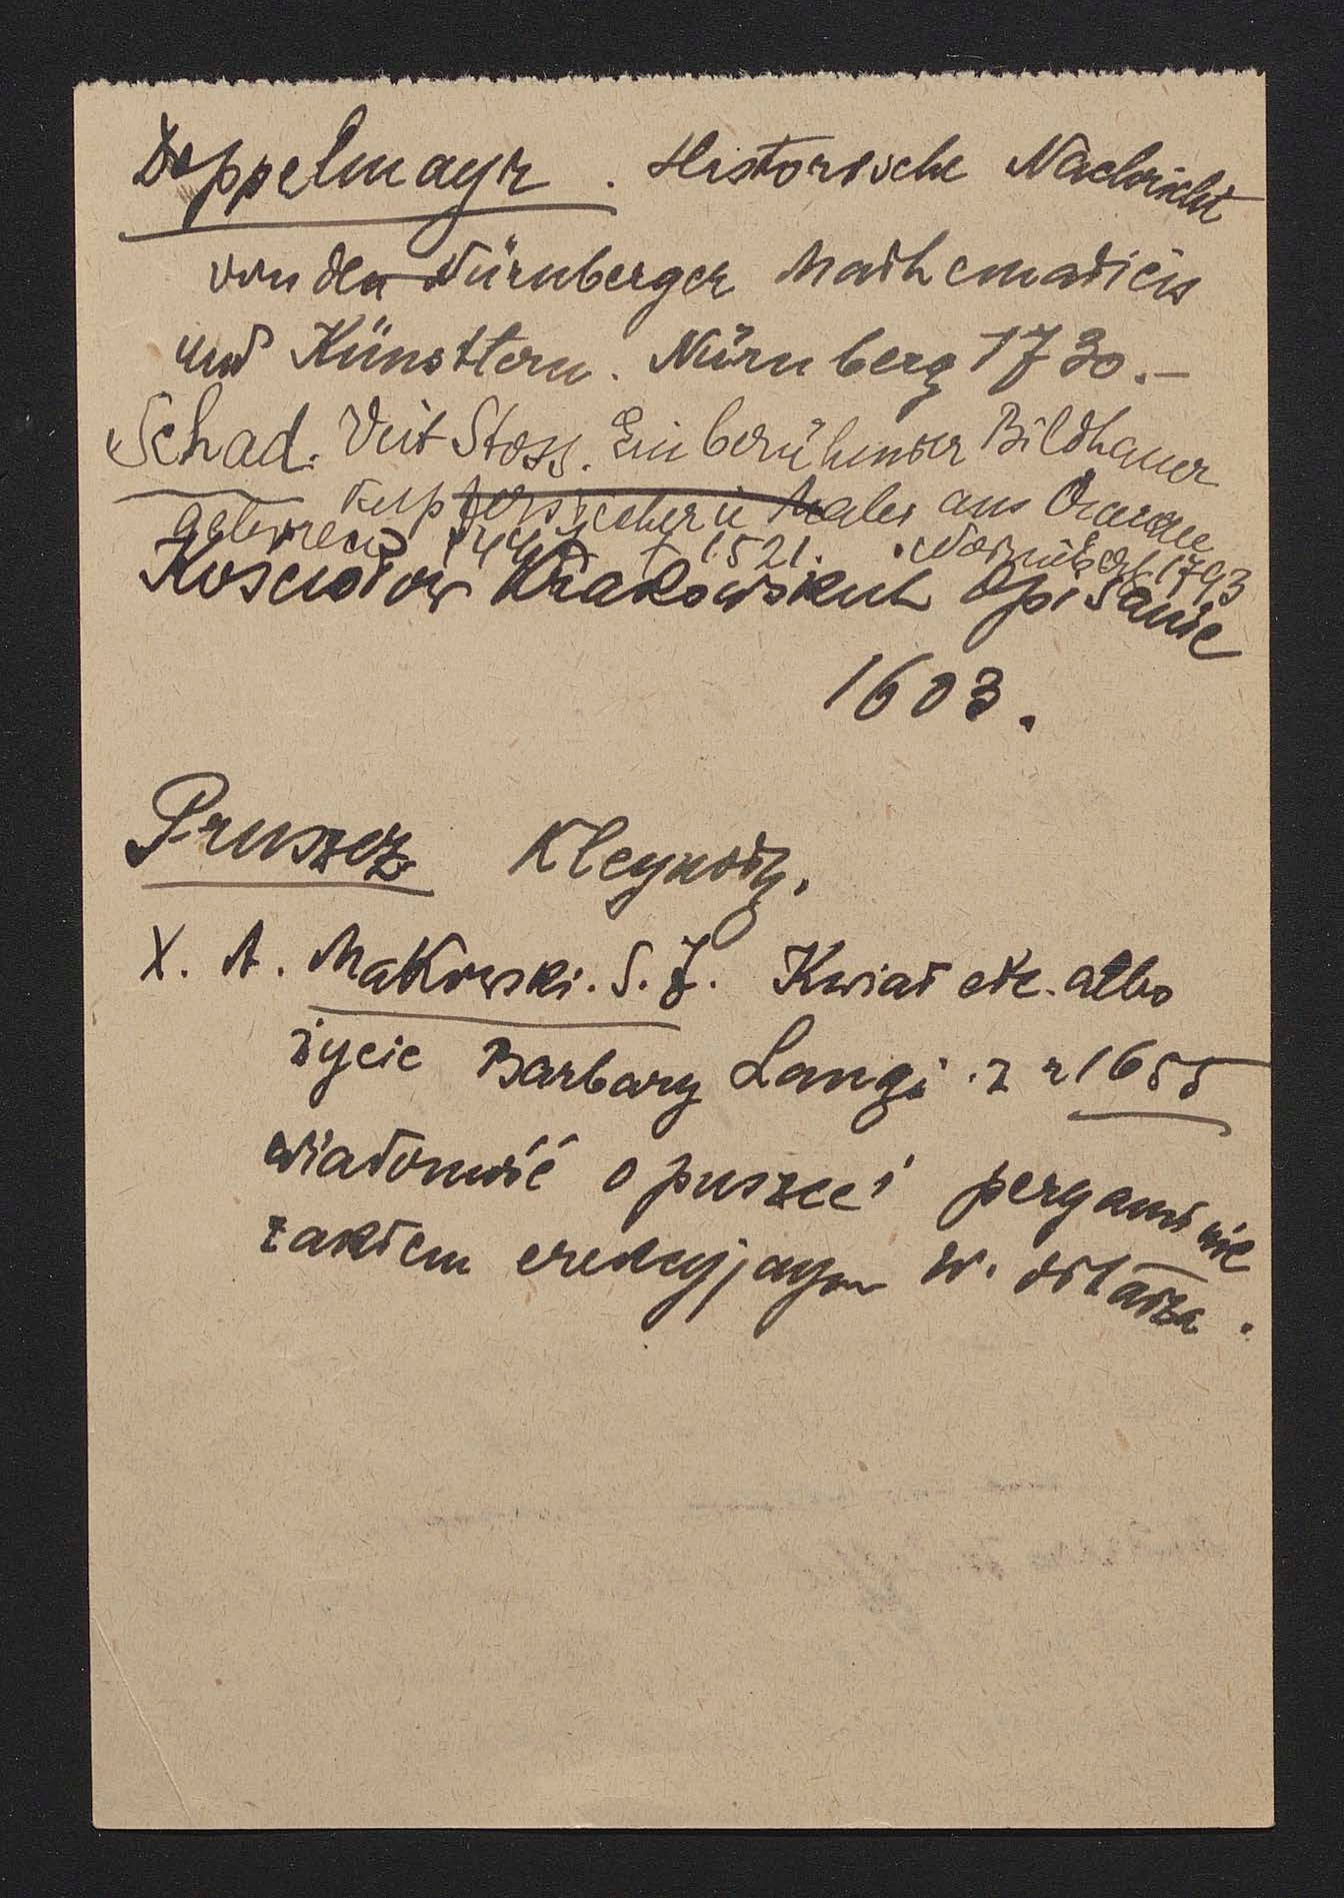 Doppelmayr. Historische Nachricht
von den Nürnberger Mathematicis
und Künstlern. Nürnberg 1730.-
Schad. Veit Stoss. Ein berühmter Bildhauer
Kupferstecher u Maler aus Cracau
geboren 1447 † 1521. Nürnberg 1793
Kosciołow Krakowskich Opisanie
1603.
Pruszcz Kleynoty.
X. A. Makowski. S. J. Kwiat etc. albo
życie Barbary Langi. z r 1655
wiadomość o puszce i pergaminie
z aktem erekcyjnym W. ołtarza.